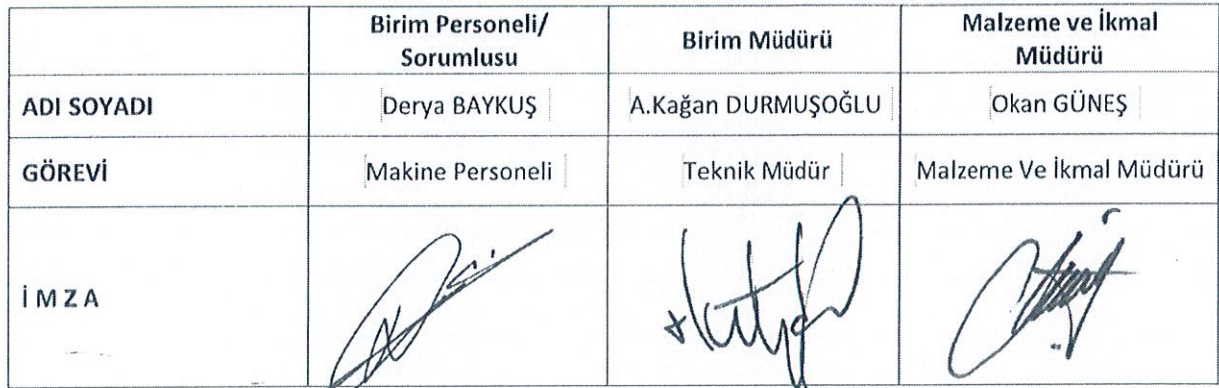 Birim Personeli/
Sorumlusu
Birim Müdürü
Malzeme ve İkmal
Müdürü
ADI SOYADI Derya BAYKUŞ A.Kağan DURMUŞOĞLU Okan GÜNEŞ
GÖREVİ Makine Personeli Teknik Müdür Malzeme Ve İkmal Müdürü
İ M Z A